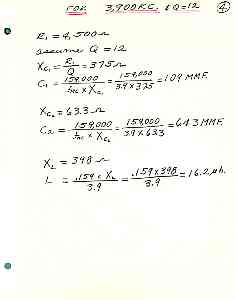 FOR 3,900 KC. & Q=12 4
R1 = 4,500 Ω
assume Q = 12
XC1 = R1/Q = 375 Ω
C1 = 159,000/(fmc × XC1) = 159,000/(3.9 × 375) = 109 MMF
XC2 = 63.3 Ω
C2 = 159,000/(fmc × XC2) = 159,000/(3.9 × 63.3) = 643 MMF.
XL = 398 Ω
L = (.159 × XL)/3.9 = (.159 × 398)/3.9 = 16.2 μh.